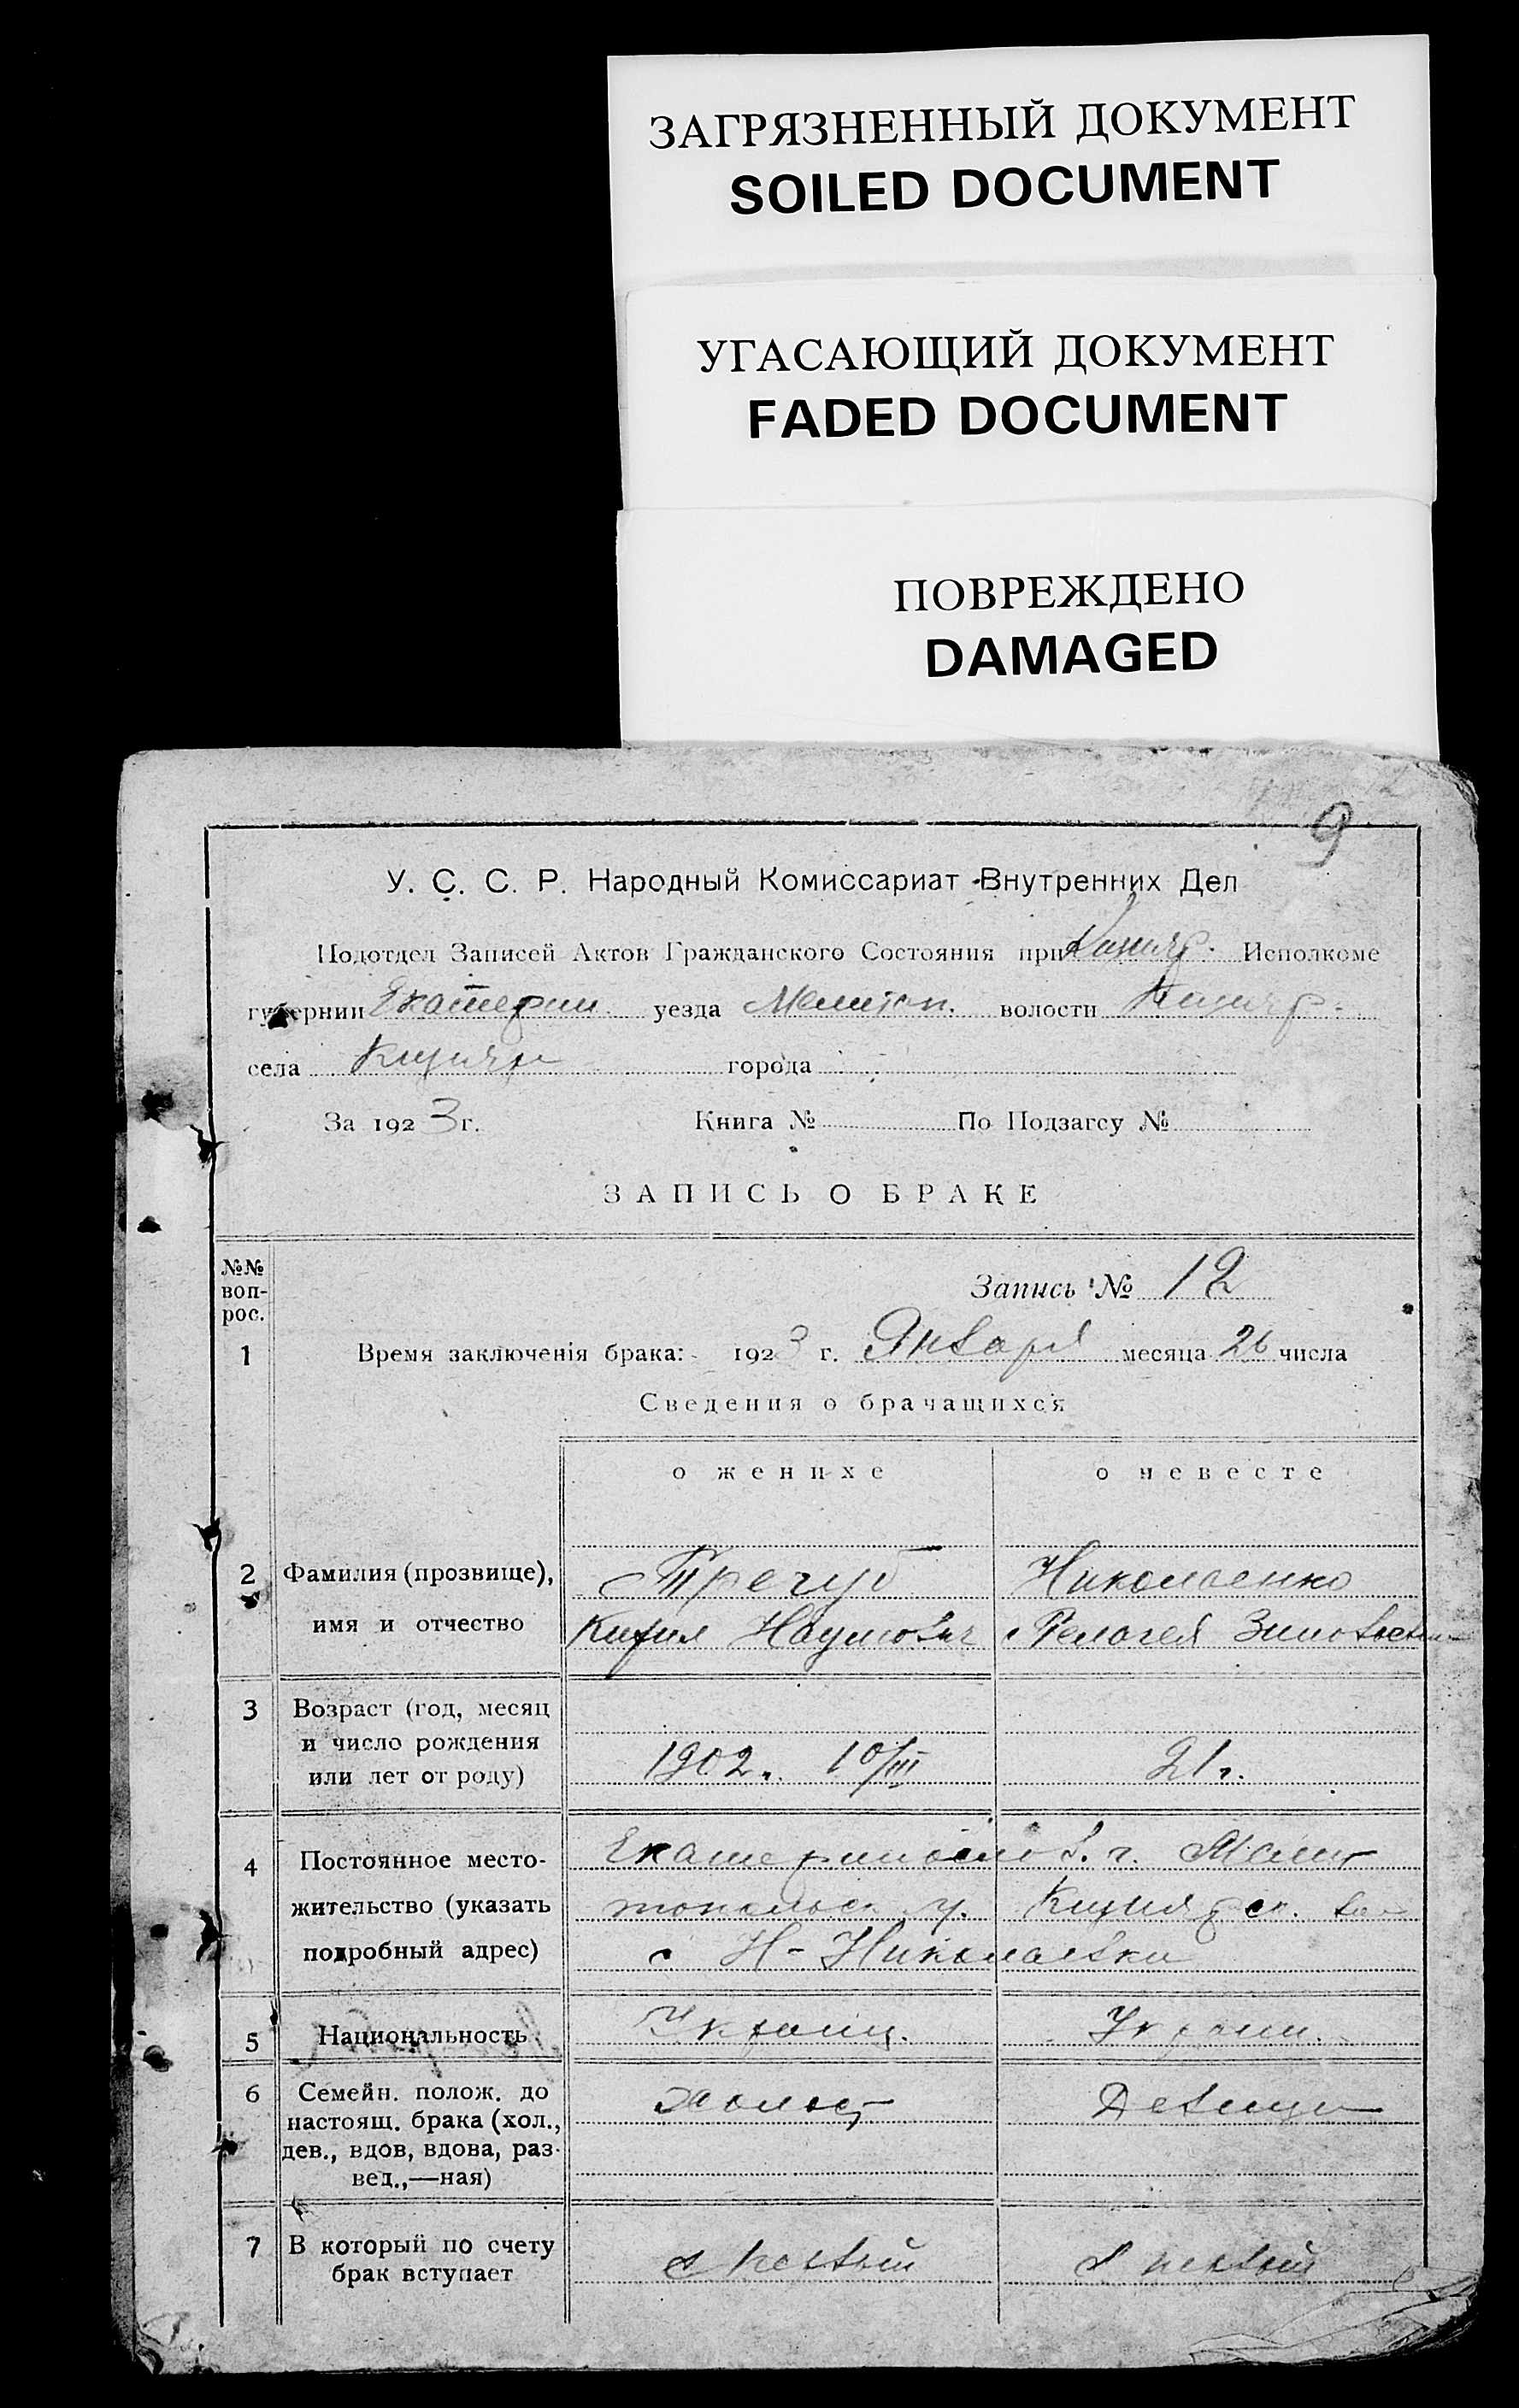 ЗАГРЯЗНЕННЫЙ ДОКУМЕНТ
SOILED DOCUMENT
УГАСАЮЩИЙ ДОКУМЕНТ
FADED DOCUMENT
ПОВРЕЖДЕНО
DAMAGED
9
У. С. С. Р. Народный Комиссариат Внутренних Дел
Подотдел Записей Актов Гражданского Состояния при Исполкоме
губернии Екатерин. уезда Мелитоп. волости
села города
За 1923 г. Книга № По Подзагсу №
ЗАПИСЬ О БРАКЕ
№№ воп-рос.
Запись № 12
1 Время заключенія брака: 1923 г. Января месяца 26 числа
Сведения о брачащихся
о женихе о невесте
2 Фамилия (прозвище), Трегуб Николаенко
имя и отчество Кирил Наумович Пелагея
3 Возраст (год, месяц
и число рождения
или лет от роду) 1902 г. 10/III 21 г.
4 Постоянное место- Екатеринослав. г. Мели
жительство (указать топольск у.
подробный адрес) с Н-Николаевки
5 Национальность Украинц. Украин.
6 Семейн. полож. до холост Девица
настоящ. брака (хол.,
дев., вдов, вдова, раз-
вед.,—ная)
7 В который по счету первый первый
брак вступает